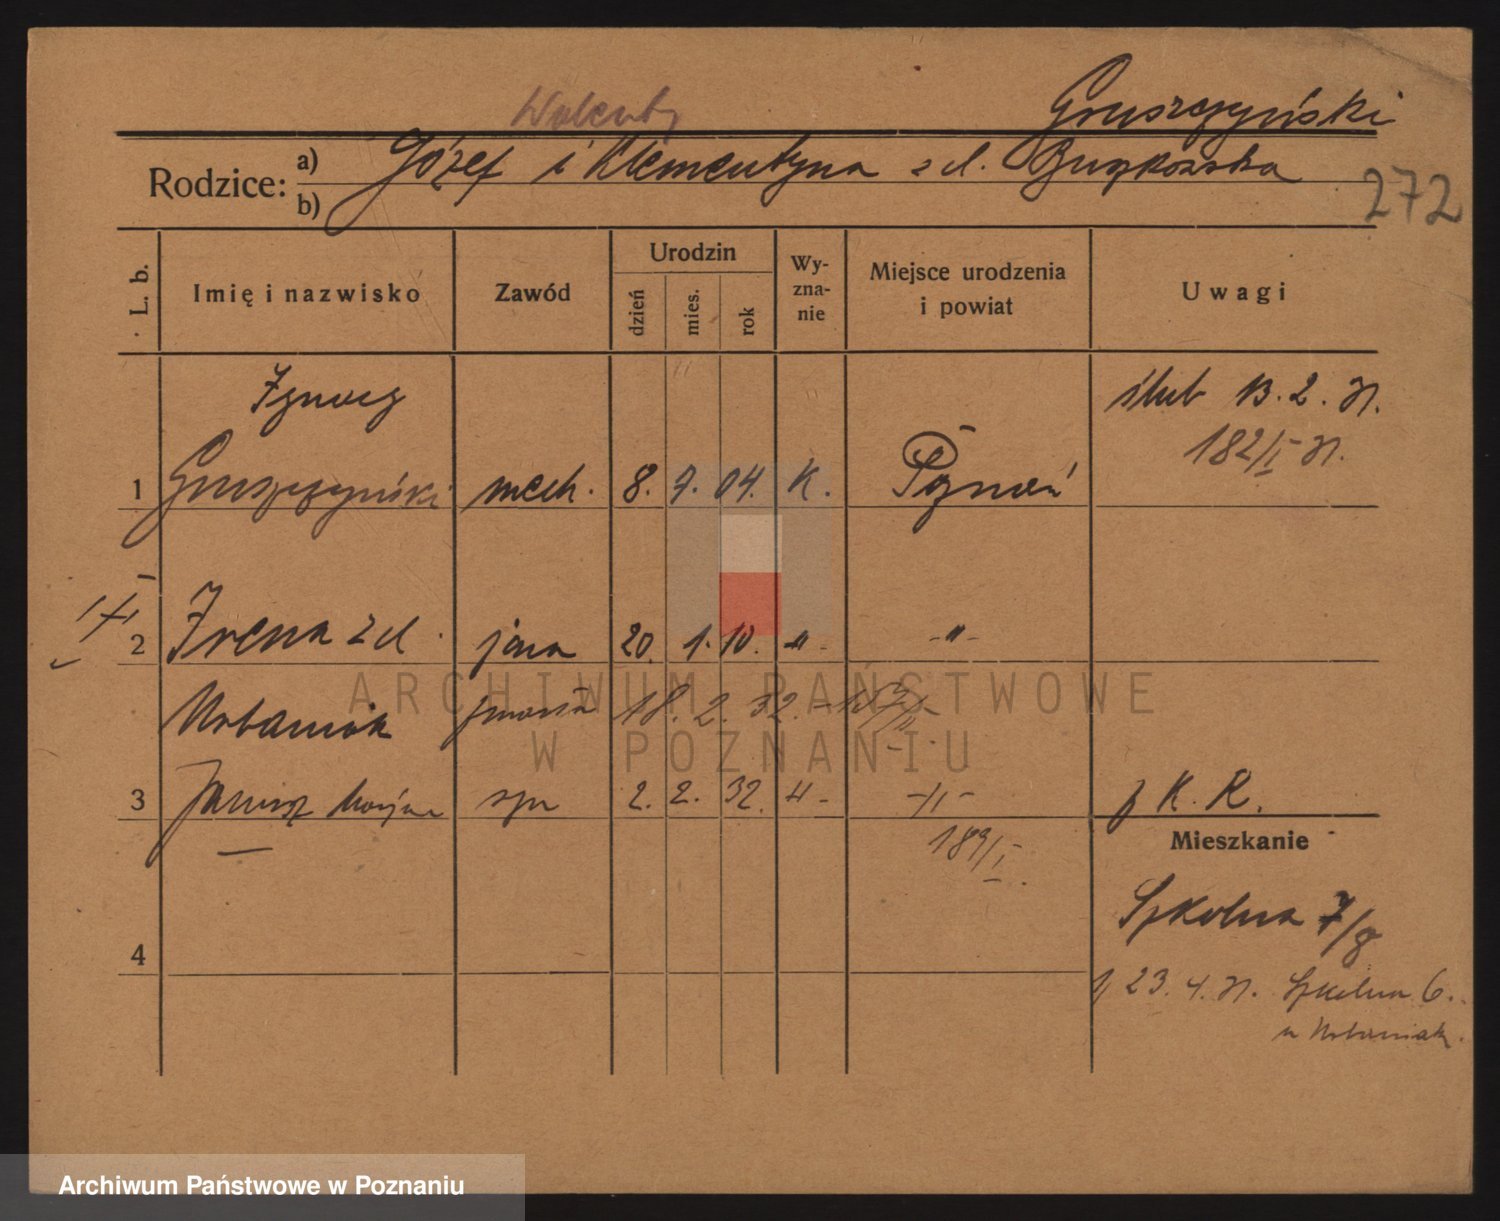 Gruszczyński
Walenty
Rodzice: a) Józef i Klementyna z d.
b)
272
L. b.
Imię i nazwisko
Zawód
Urodzin
dzień
mies.
rok
Wy-
zna-
nie
Miejsce urodzenia
i powiat
Uwagi
Ignacy
ślub 13. 2. 31.
182/I 31.
1 Gruszczyński mech. 8. 7. 04. K. Poznań
2 Irena z d. 20. 1. 10. -"- -"-
Urbaniak 18. 2. 32.
3 Janusz syn 2. 2. 32. -"- -"- K. R.
189/I
Mieszkanie
Szkolna 7/8
4
23. 4. 31. Szkolna 6.
u Urbaniak.
ARCHIWUM PAŃSTWOWE
W POZNANIU
Archiwum Państwowe w Poznaniu